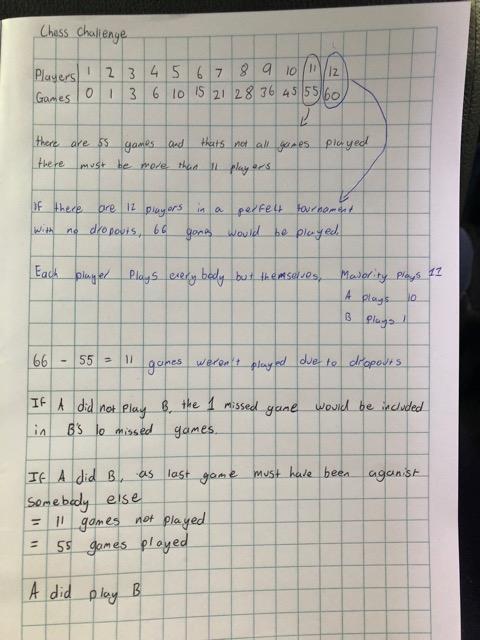 Chess Challenge
Players 1 2 3 4 5 6 7 8 9 10 11 12
Games 0 1 3 6 10 15 21 28 36 45 55 60
there are 55 games and thats not all games played
there must be more than 11 players
If there are 12 players in a perfect tournament
with no dropouts, 66 games would be played.
Each player plays everybody but themselves, Majority plays 11
A plays 10
B plays 1
66 - 55 = 11 games weren't played due to dropouts
If A did not play B, the 1 missed game would be included
in B's 10 missed games.
If A did B, as last game must have been aganist
somebody else
= 11 games not played
= 55 games played
A did play B